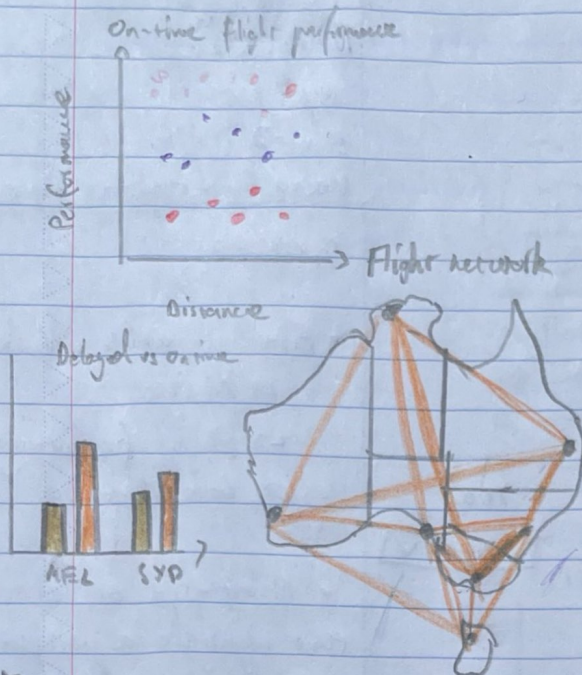 On-time flight performance
Performance
Distance
Flight network
Delayed vs ontime
MEL SYD